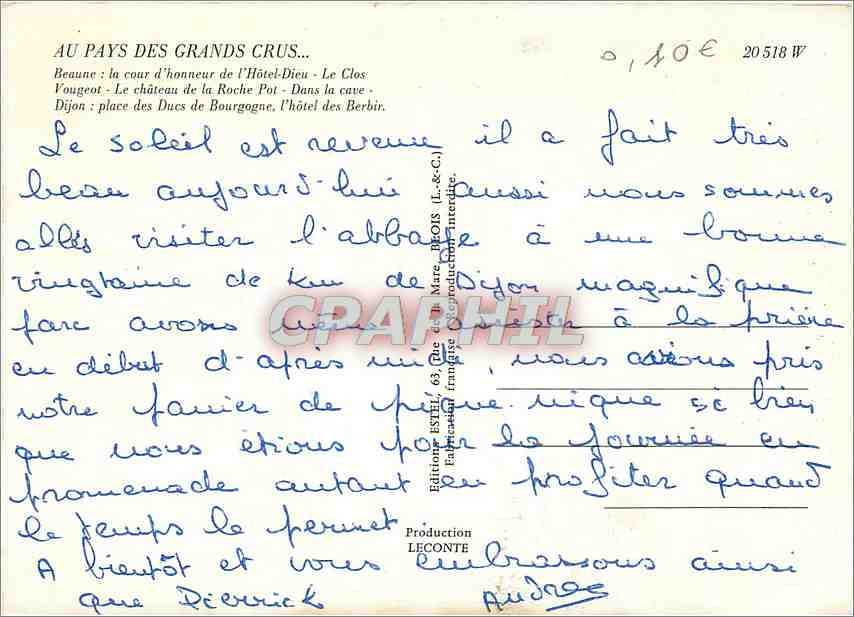 AU PAYS DES GRANDS CRUS...
0,10€
20 518 W
Beaune : la cour d'honneur de l'Hôtel-Dieu - Le Clos
Vougeot - Le château de la Roche Pot - Dans la cave -
Dijon : place des Ducs de Bourgogne, l'hôtel des Berbir.
Le soleil est revenu il a fait très
beau aujourd'hui aussi nous sommes
allés visiter l'abbaye à une bonne
vingtaine de km de Dijon magnifique
parc avons même assister à la prière
en début d'après midi, nous avions pris
notre panier de pique-nique si bien
que nous étions pour la journée en
promenade autant en profiter quand
le temps le permet.
A bientôt et vous embrassons ainsi
que Pierrick
Andrée
Editions ESTEL, 63, rue de la Mare, BLOIS (L.-&-C.)
Fabrication française - Reproduction interdite.
Production
LECONTE
CPAPHIL